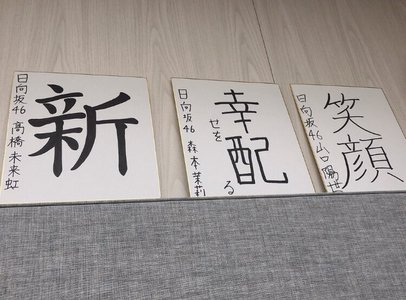 新
日向坂46 髙橋未来虹
幸
せを
配る
日向坂46 森本茉莉
笑顔
日向坂46 山口陽世